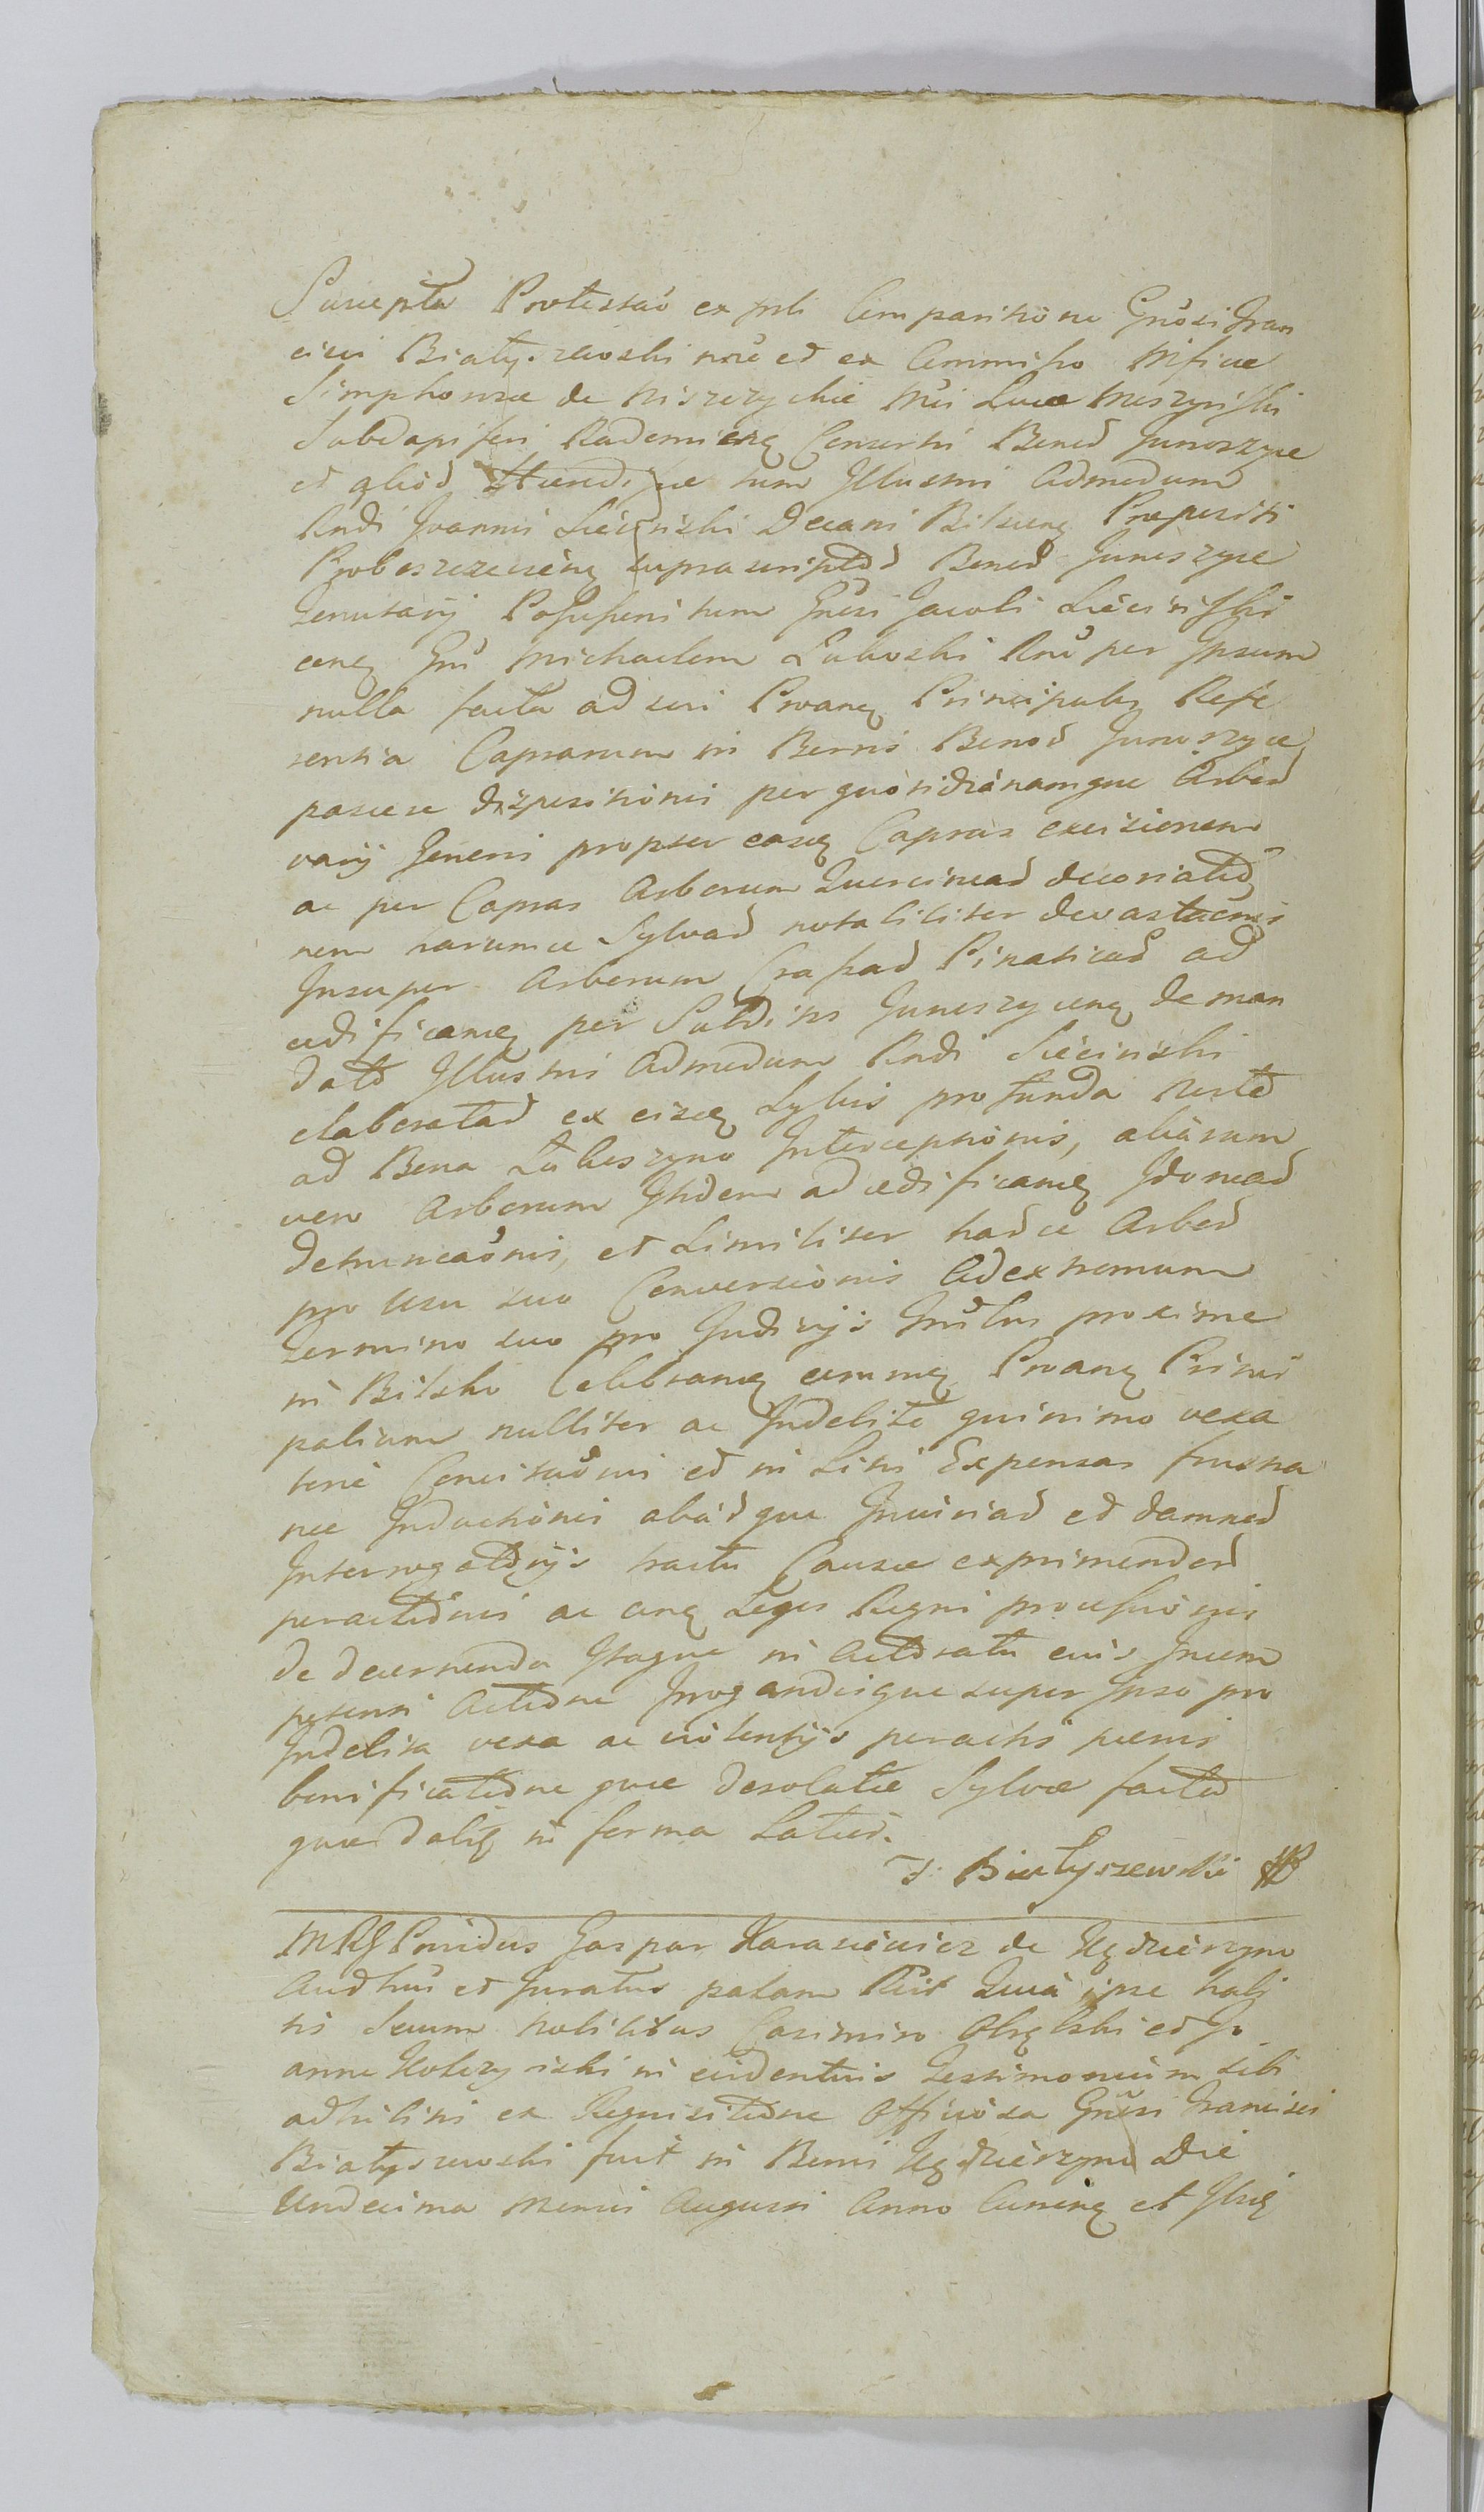 Suscepta Protestaō ex pñti Comparitione Gñosi Fran
cisci Białyszewski nōe et ex Commisso Mñficae
Simphorosae de Niszczyckie Mci Lucae Meszyński
Subdapiferi Rademien̄ Consortis Bonoȓ Junoszyce
et alioȓ Haeredisque tum Illustris Admodum
Rndi Joannis Siecinski Decani Bilscen̄ Praepositi
Proboszczewien̄ supra scriptoȓ Bonoȓ Junoszyce
Tenutarij Possessoris tum Gñosi Jacobi Siecinski
conq̄ Gñu Michaelem Łukoski Rnō per Ipsum
nulla facta ad sui Proan̄ Principales Refe
rentia Caprarum in Bonis Bonoȓ Junoszyce
pascere dispositionis per quotidianamque Arboȓ
varij Generis propter easdē Capras excisionem
ac per Capras Arborum Quercinearȓ decoriatio
nem harumce Sylvarȓ notabiliter devastaōnis
Insuper Arborum Crassarȓ Pinasticarȓ ad
aedificanq̄ per Subditos Junoszycen̄ de man
dato Illustris Admodum Rndi Siecinski
elaboratarȓ ex eisdē Sylvis profunda nocte
ad Bona Łukoszyno Interceptionis, aliarum
vero Arborum Itidem ad aedificanq̄ Idonearȓ
detruncaōnis, et Similiter harȓce Arboȓ
pro usu suo Conversionis Ad extremum
Termino suo pro Judicijs Trñlibus proxime
in Bilsko Celebranq̄ eorumq̄ Proan̄ Princi
palium nulliter ac Indebite quinimo vexa
torie Concitaōnis et in Litis Expensas frustra
nee Inductionis aliarȓque Injuriarȓ et damnoȓ
Interrogatorijs tractu Causae exprimendoȓ
peractionis ac conq̄ Leges Regni processionis
de decernenda Itaque in Actoratu eius Incom
petensi Actione Irrogandisque super Ipso pro
Indebita vexa ac violentijs peractis poenis
bonificatione quae desolatae Sylvae facta
quaerȓdaliē in forma Latiori.
F: Białyszewski
MRG Providus Gaspar Karasiewicz de Kędzierzyno
Authūs et Juratus palam Recit Quia ipse habi
tis Secum Nobilibus Casimiro Obrębski et Jo
anne Kołczyński in evidentius testimonium sibi
adhibitis ex Requisitione Officiosa Gñosi Francisci
Białyszewski fuit in Bonis Kędzierzyno Die
Undecima Mensis Augusti Anno Currenē et Ibidē